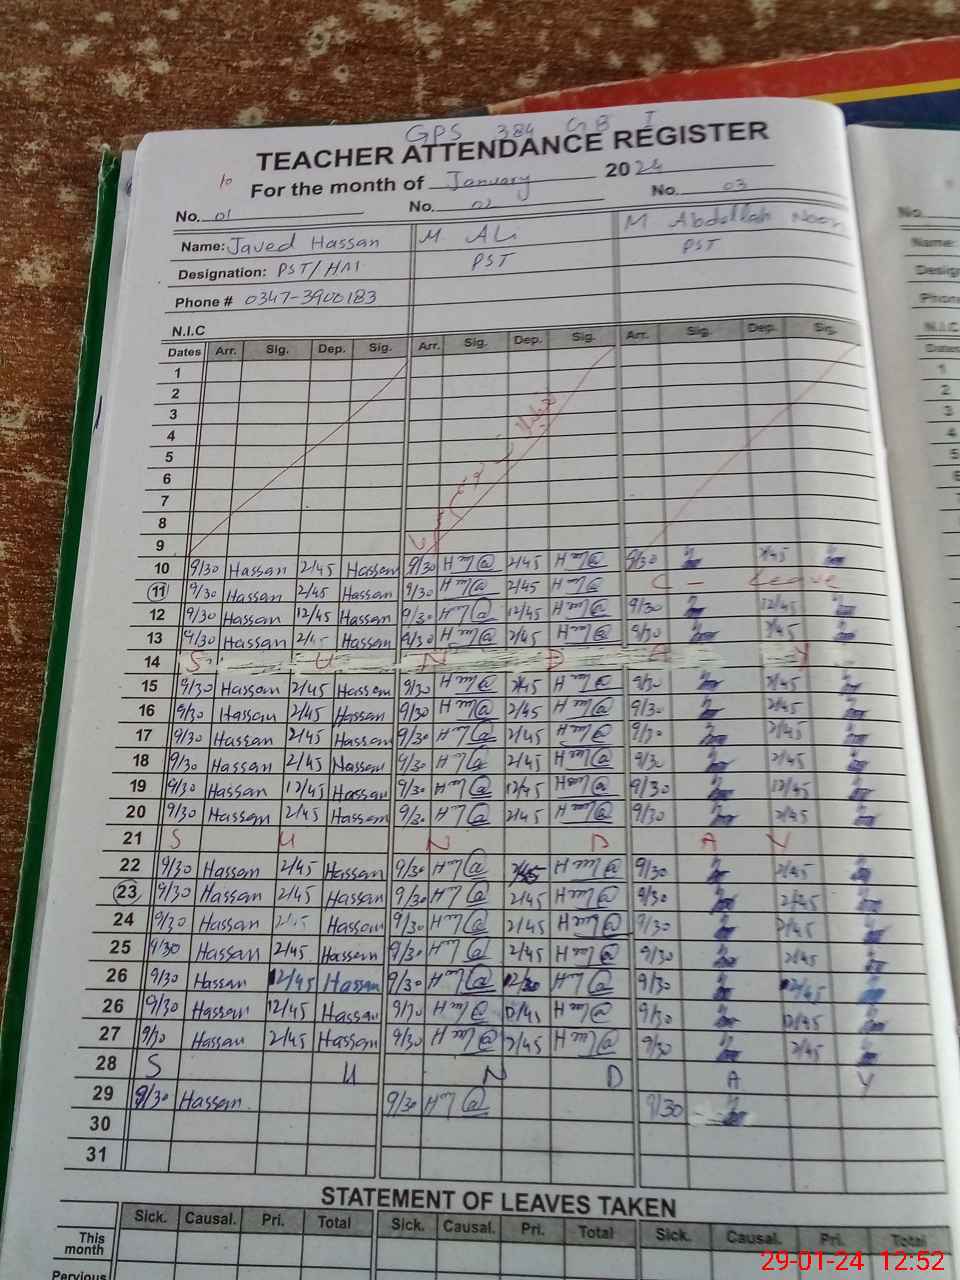 GPS 384 GB I
TEACHER ATTENDANCE REGISTER
10 For the month of January 2024
No. 01 No. 02 No. 03
Name: Javed Hassan M ALi M Abdullah Noor
Designation: PST/HM PST PST
Phone # 0347-3900183
N.I.C
Dates Arr. Sig. Dep. Sig. Arr. Sig. Dep. Sig. Arr. Sig. Dep. Sig.
1
2
3
4
5
6
7
8
9
10 9/30 Hassan 2/45 Hassan 9/30 2/45 9/30 2/45
11 9/30 Hassan 2/45 Hassan 9/30 2/45 C - Leave
12 9/30 Hassan 12/45 Hassan 9/30 12/45 9/30 12/45
13 9/30 Hassan 2/45 Hassan 9/30 2/45 9/30 2/45
14 S U N D A Y
15 9/30 Hassan 2/45 Hassan 9/30 2/45 9/30 2/45
16 9/30 Hassan 2/45 Hassan 9/30 2/45 9/30 2/45
17 9/30 Hassan 2/45 Hassan 9/30 2/45 9/30 2/45
18 9/30 Hassan 2/45 Hassan 9/30 2/45 9/30 2/45
19 9/30 Hassan 12/45 Hassan 9/30 12/45 9/30 12/45
20 9/30 Hassan 2/45 Hassan 9/30 2/45 9/30 2/45
21 S U N D A Y
22 9/30 Hassan 2/45 Hassan 9/30 2/45 9/30 2/45
23 9/30 Hassan 2/45 Hassan 9/30 2/45 9/30 2/45
24 9/30 Hassan 2/45 Hassan 9/30 2/45 9/30 2/45
25 9/30 Hassan 2/45 Hassan 9/30 2/45 9/30 2/45
26 9/30 Hassan 12/45 Hassan 9/30 12/30 9/30 12/45
26 9/30 Hassan 12/45 Hassan 9/30 9/30 12/45
27 9/30 Hassan 2/45 Hassan 9/30 2/45 9/30 2/45
28 S U N D A Y
29 9/30 Hassan 9/30 9/30
30
31
STATEMENT OF LEAVES TAKEN
Sick. Causal. Pri. Total Sick. Causal. Pri. Total Sick. Causal. Pri. Total
This month
Pervious
No.
Name:
Phone
N.I.C
Dates
1
2
3
4
5
6
29-01-24 12:52